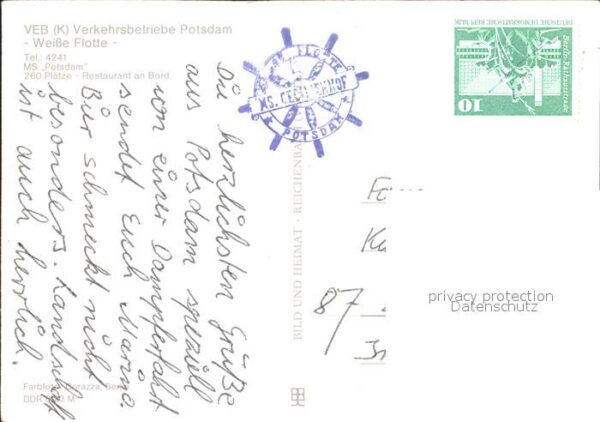 VEB (K) Verkehrsbetriebe Potsdam
- Weiße Flotte -
Tel.: 4241
MS „Potsdam“
260 Plätze - Restaurant an Bord
Die herzlichsten Grüße
aus Potsdam speziell
von einer Dampferfahrt
sendet Euch Marina.
Bier schmeckt nicht
besonders. Landschaft
ist auch herrlich.
WEISSE FLOTTE
XS. CECILIENHOF
POTSDAM
BILD UND HEIMAT · REICHENBACH
DEUTSCHE DEMOKRATISCHE REPUBLIK
Berlin, Rathausstraße
10
87
privacy protection
Datenschutz
Farbfoto: Borazza, Berlin
DDR M